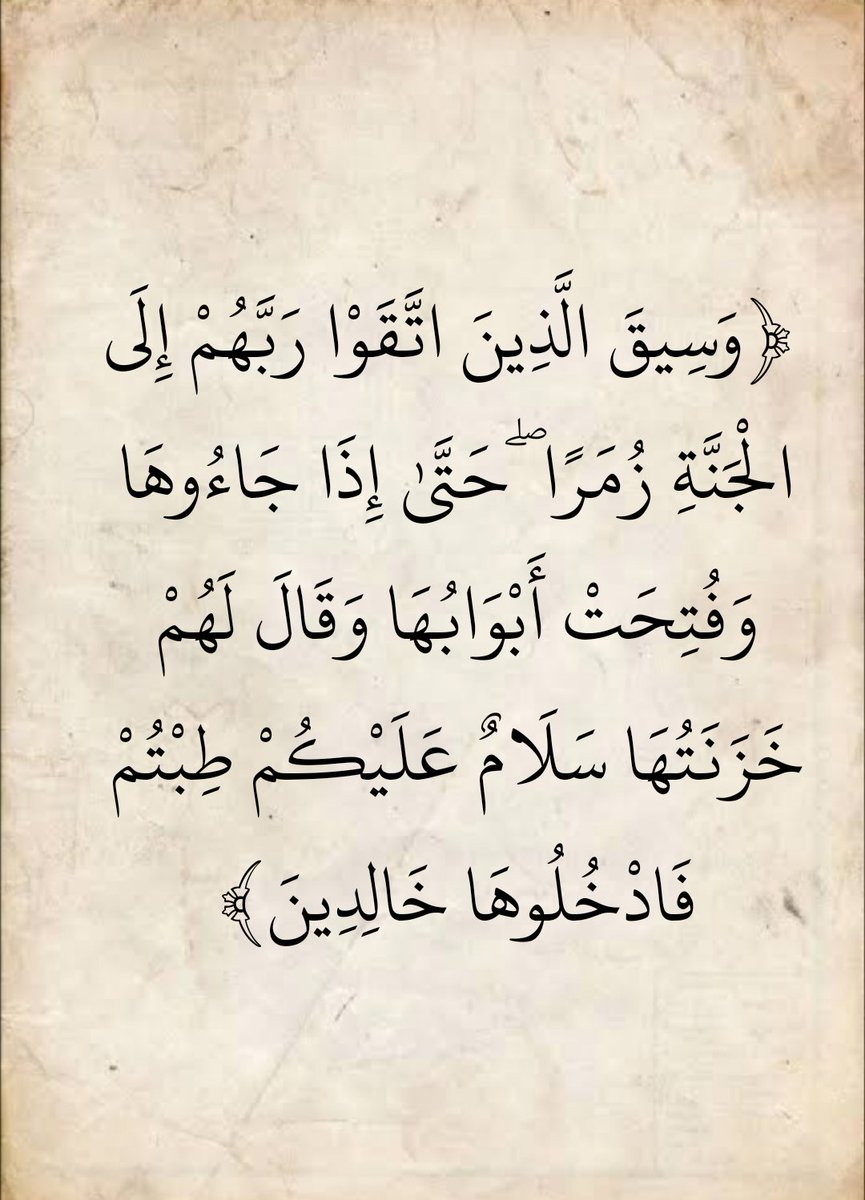 ﴿وَسِيقَ الَّذِينَ اتَّقَوْا رَبَّهُمْ إِلَى
الْجَنَّةِ زُمَرًا ۖ حَتَّىٰ إِذَا جَاءُوهَا
وَفُتِحَتْ أَبْوَابُهَا وَقَالَ لَهُمْ
خَزَنَتُهَا سَلَامٌ عَلَيْكُمْ طِبْتُمْ
فَادْخُلُوهَا خَالِدِينَ﴾